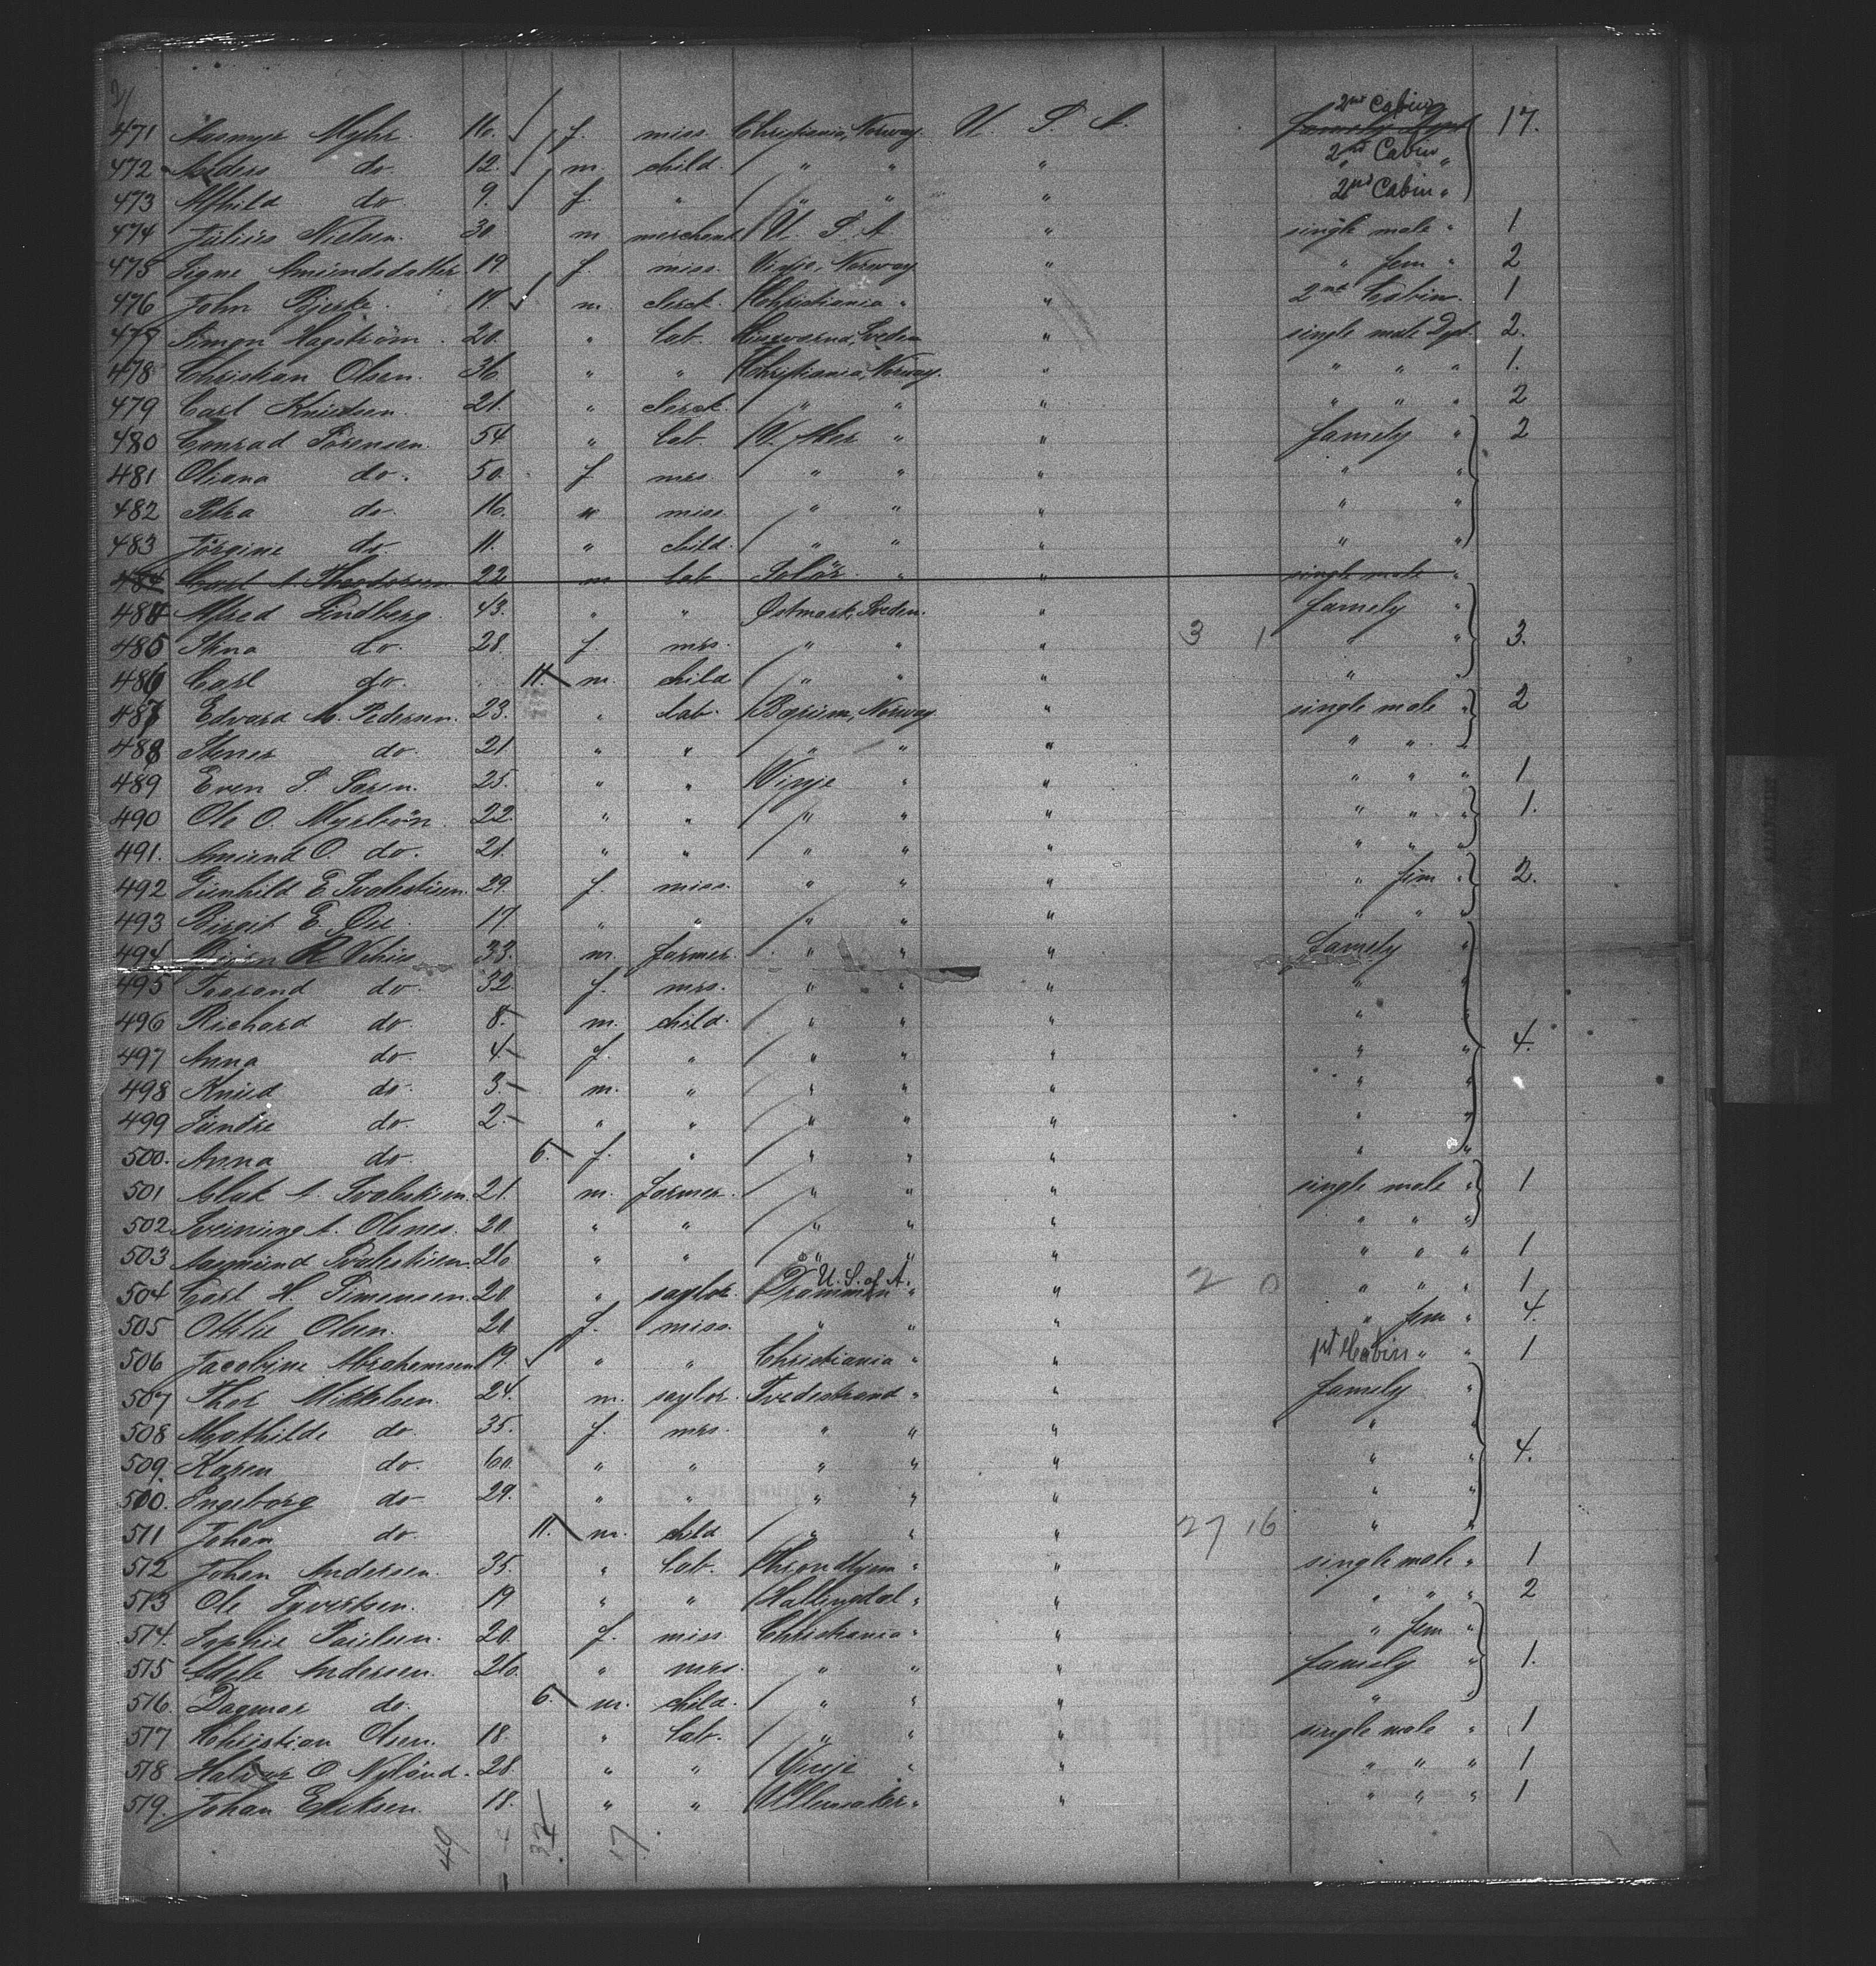 471 Aasmyr Myhr. 16. f. miss. Christiania, Norway. U. S. A. 2nd Cabin 17.
472 Anders do. 12. m. child. " " " 2nd Cabin "
473 Alfhild do. 9. f. " " " " 2nd Cabin "
474 Julius Nielsen. 30. m. merchand U. S. A. " single male " 1
475 Signe Amundsdatter. 19. f. miss. Vinje, Norway " " fem " 2
476 John Bjerke. 17. m. clerck. Christiania " " 2nd Cabin. 1
477 Simon Hagström. 20. " lab. Husvarna, Sveden " single male Dpt. 2.
478 Christian Olsen. 36 " " Christiania, Norway. " " " " 1.
479 Carl Knudsen. 21. " clerck. " " " " " " 2
480 Conrad Sörensen. 54. " lab. V. Aker " " famely " 2
481 Oliana do. 50. f. mrs. " " " " "
482 Petra do. 16. " miss. " " " " "
483 Jörgine do. 11. " child. " " " " "
484 Carl A. Theodorsen 22 m lab. Solör " " single male "
484 Alfred Lindberg. 43. " " Östmark, Sveden. " famely "
485 Stina do. 28. f mrs. " " " 3 1 " " 3.
486 Carl do. 11. m. child " " " " "
487 Edvard M. Pedersen. 23. " lab. Bærum, Norway " single male " 2
488 Stener do. 21. " " " " " " " "
489 Even S. 25. " " Vinje " " " " " 1
490 Ole O. Myrbön. 22. " " " " " " " " 1.
491. Amund O. do. 21. " " " " " " " "
492 Gunhild E. Svalestuen. 29. f. miss. " " " " fem " 2.
493 Birgit E. 17 " " " " " " " "
494 R. 33. m. farmer. " " " famely "
495 Taarand do. 32 f. mrs. " " " " "
496 Richard do. 8. m. child. " " " " "
497 Anna do. 4 f. " " " " " " 4.
498 Knud do. 3. m. " " " " " "
499 Sundre do. 2. " " " " " " "
500. Anna do. 6. f. " " " " " "
501 Aslak A. Svalestuen. 21. m. farmer. " " " single male " 1
502 Sveinung A. Olsnes. 20. " " " " " " " "
503 Aasmund Svalestuen. 26. " " " " " " " " 1
504 Carl H. Simensen. 20 " saylor. Drammen U. S. of A. " " 2 0 " " " 1
505 Otilie Olsen. 20 f. miss. " " " " fem " 4.
506 Jacobine Abrahamsen 19. " " Christiania " " 1st Cabin " " 1
507 Thor Mikkelsen. 24. m. saylor. Tvedestrand " " famely "
508 Mathilde do. 35. f. mrs. " " " " "
509. Karen do. 60. " " " " " " " 4.
510. Ingeborg do 29. " " " " " " "
511 Johan do. 11. m. child " " " 27 16 " "
512 Johan Andersen. 35. " lab. Throndhjem " " single male " 1
513 Ole Syvertsen. 19 " " Hallingdal " " " " " 2
514. Sophie Paulsen. 20. f. miss Christiania " " " fem "
515 Andersen. 26. " mrs. " " " famely " 1.
516. Dagmar do. 6. m. child. " " " " "
517 Christian Olsen. 18. " lab. " " " single male " 1
518 Halvor O. Nylund. 28. " " Vinje " " " " " 1
519. Johan Eriksen. 18. " " Ullensaker " " " " " 1
49 32 17